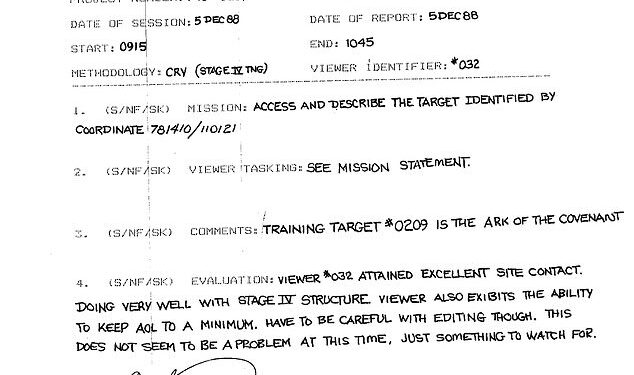 DATE OF SESSION: 5 DEC 88 DATE OF REPORT: 5 DEC 88
START: 0915 END: 1045
METHODOLOGY: CRV (STAGE IV TNG) VIEWER IDENTIFIER: #032
1. (S/NF/SK) MISSION: ACCESS AND DESCRIBE THE TARGET IDENTIFIED BY
COORDINATE 781410/110121
2. (S/NF/SK) VIEWER TASKING: SEE MISSION STATEMENT.
3. (S/NF/SK) COMMENTS: TRAINING TARGET #0209 IS THE ARK OF THE COVENANT
4. (S/NF/SK) EVALUATION: VIEWER #032 ATTAINED EXCELLENT SITE CONTACT.
DOING VERY WELL WITH STAGE IV STRUCTURE. VIEWER ALSO EXIBITS THE ABILITY
TO KEEP AOL TO A MINIMUM. HAVE TO BE CAREFUL WITH EDITING THOUGH. THIS
DOES NOT SEEM TO BE A PROBLEM AT THIS TIME, JUST SOMETHING TO WATCH FOR.